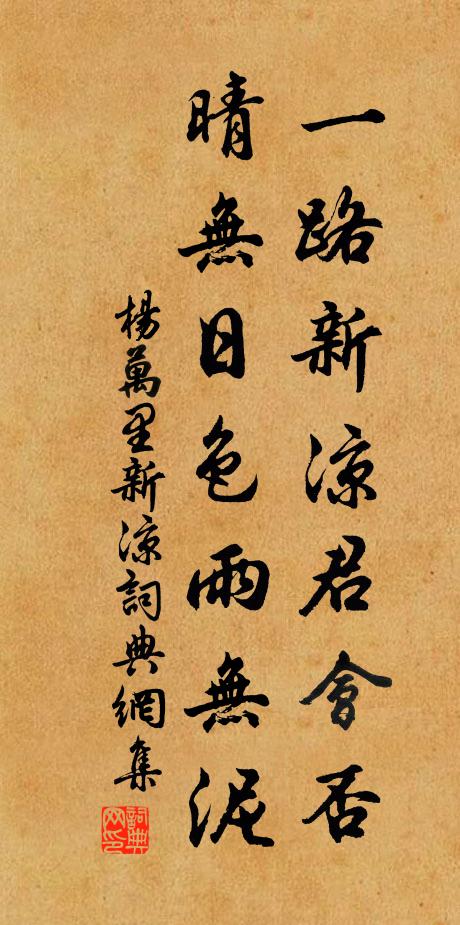 一路新涼君會否
晴無日色雨無泥
楊萬里新涼詞典網集
詞典網印